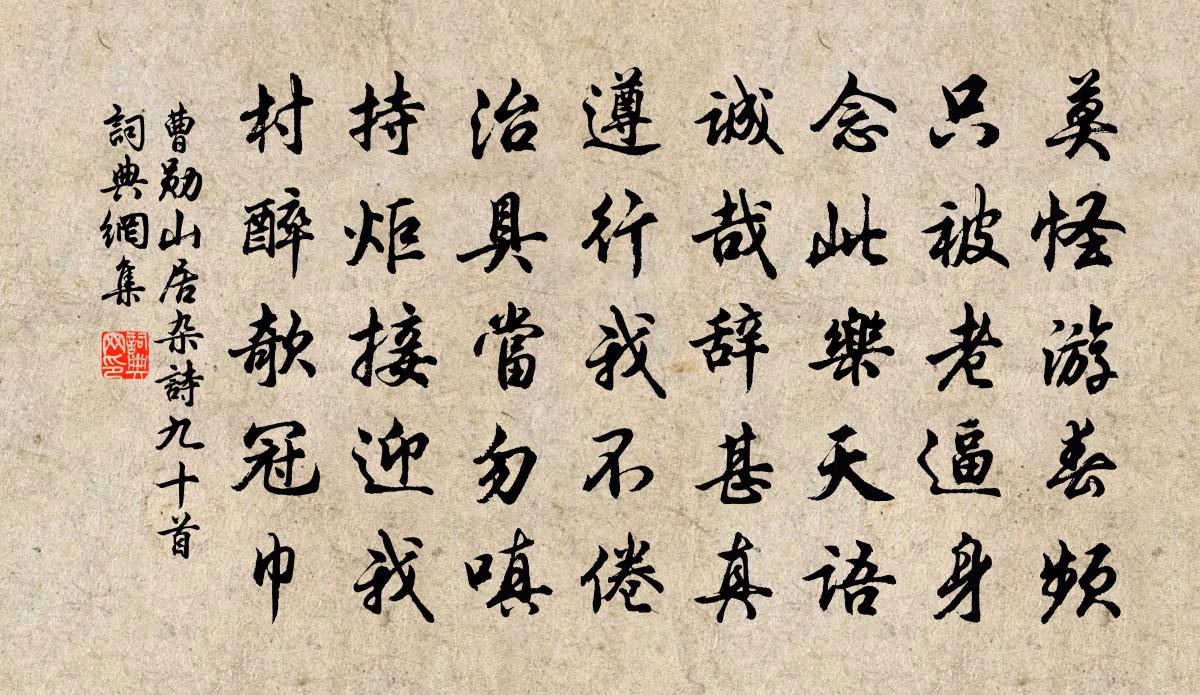 莫怪游春频
只被老逼身
念此樂天語
誠哉辞甚真
遵行我不倦
治具當勿嗔
持炬接迎我
村醉欹冠巾
曹勋山居杂詩九十首
詞典網集
詞典
网印